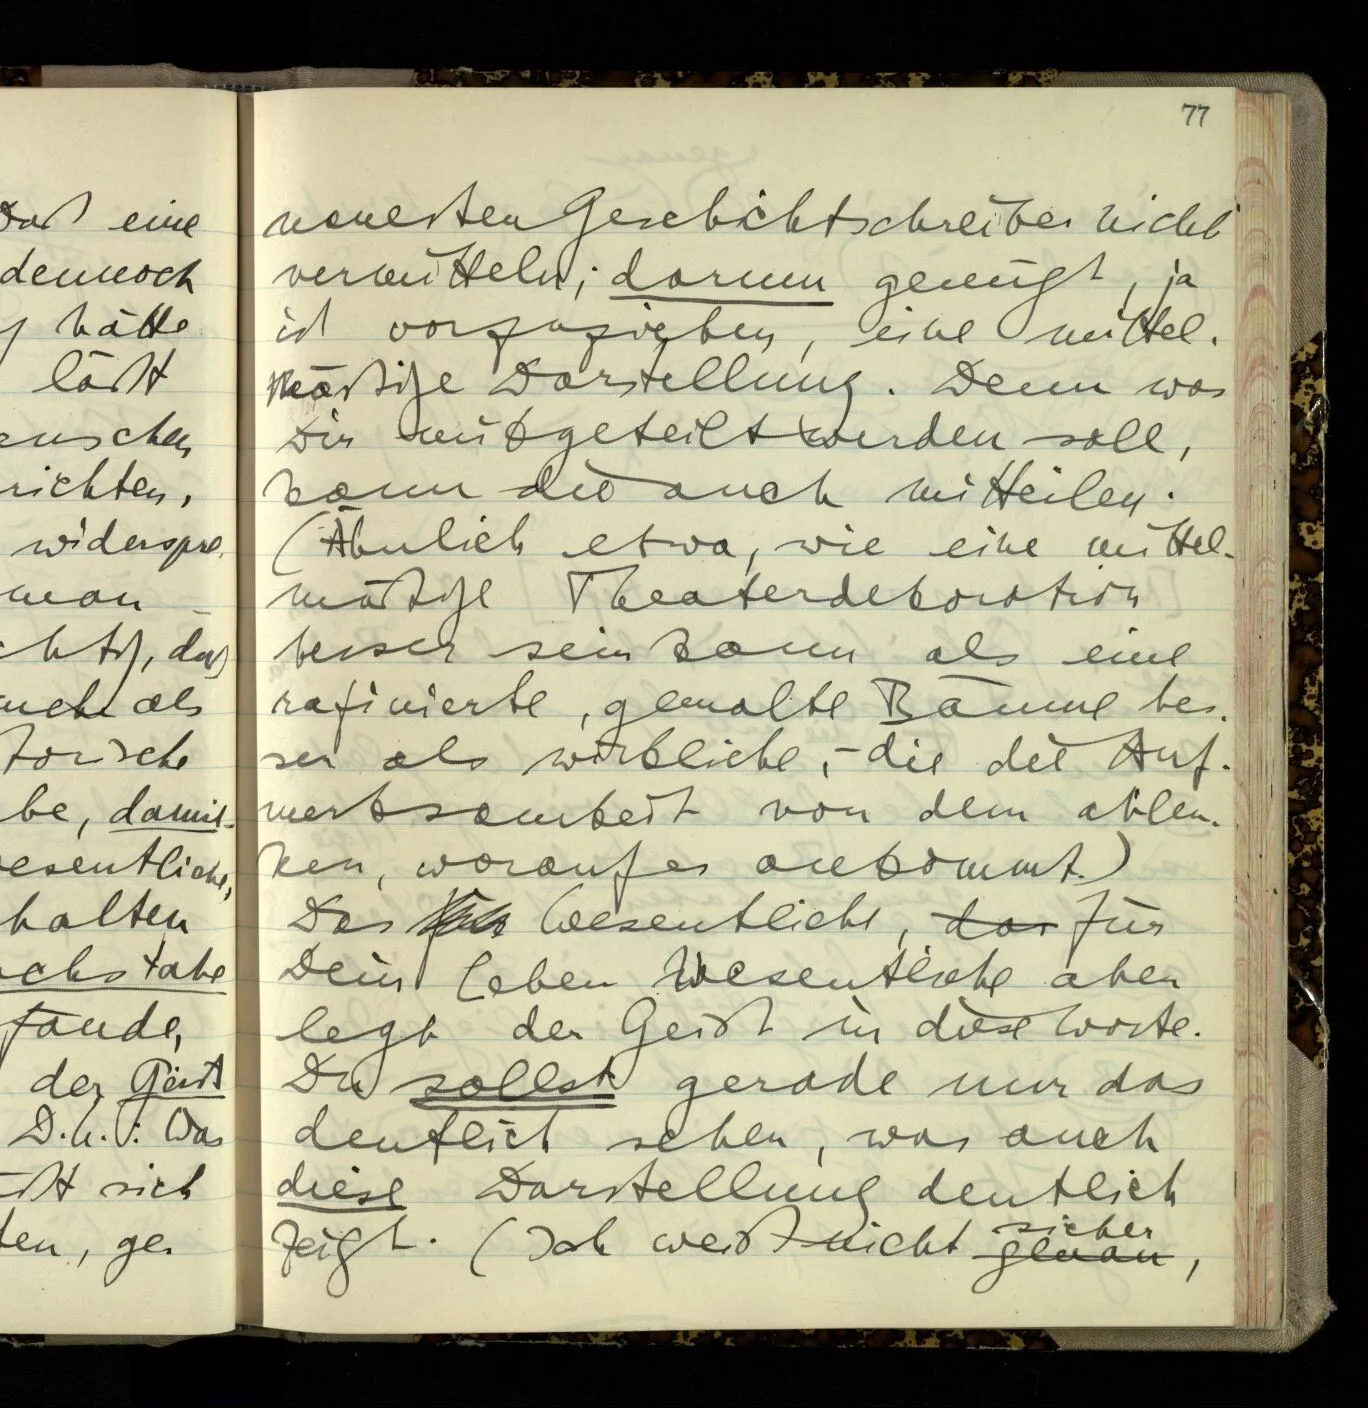 77
Daß eine
dennoch
hätte
läßt
enschen
richten,
widerspre
man
chtig, daß
auch als
torische
be, damit
esentliche,
halten
chstabe
fände,
der Geist
D.h.: Was
ißt sich
ten, ge
neuesten Geschichtschreiber nicht
vermitteln; darum genügt, ja
ist vorzuziehen, eine mittel-
mäßige Darstellung. Denn was
Dir mitgeteilt werden soll,
kann die auch mitteilen.
(Ähnlich etwa, wie eine mittel-
mäßige Theaterdekoration
besser sein kann als eine
rafinierte, gemalte Bäume bes-
ser als wirkliche, – die die Auf-
merksamkeit von dem ablen-
ken, worauf es ankommt.)
Das Wesentliche, das für
Dein Leben Wesentliche aber
legt der Geist in diese Worte.
Du sollst gerade nur das
deutlich sehen, was auch
diese Darstellung deutlich
zeigt. (Ich weiß nicht sicher
genau,